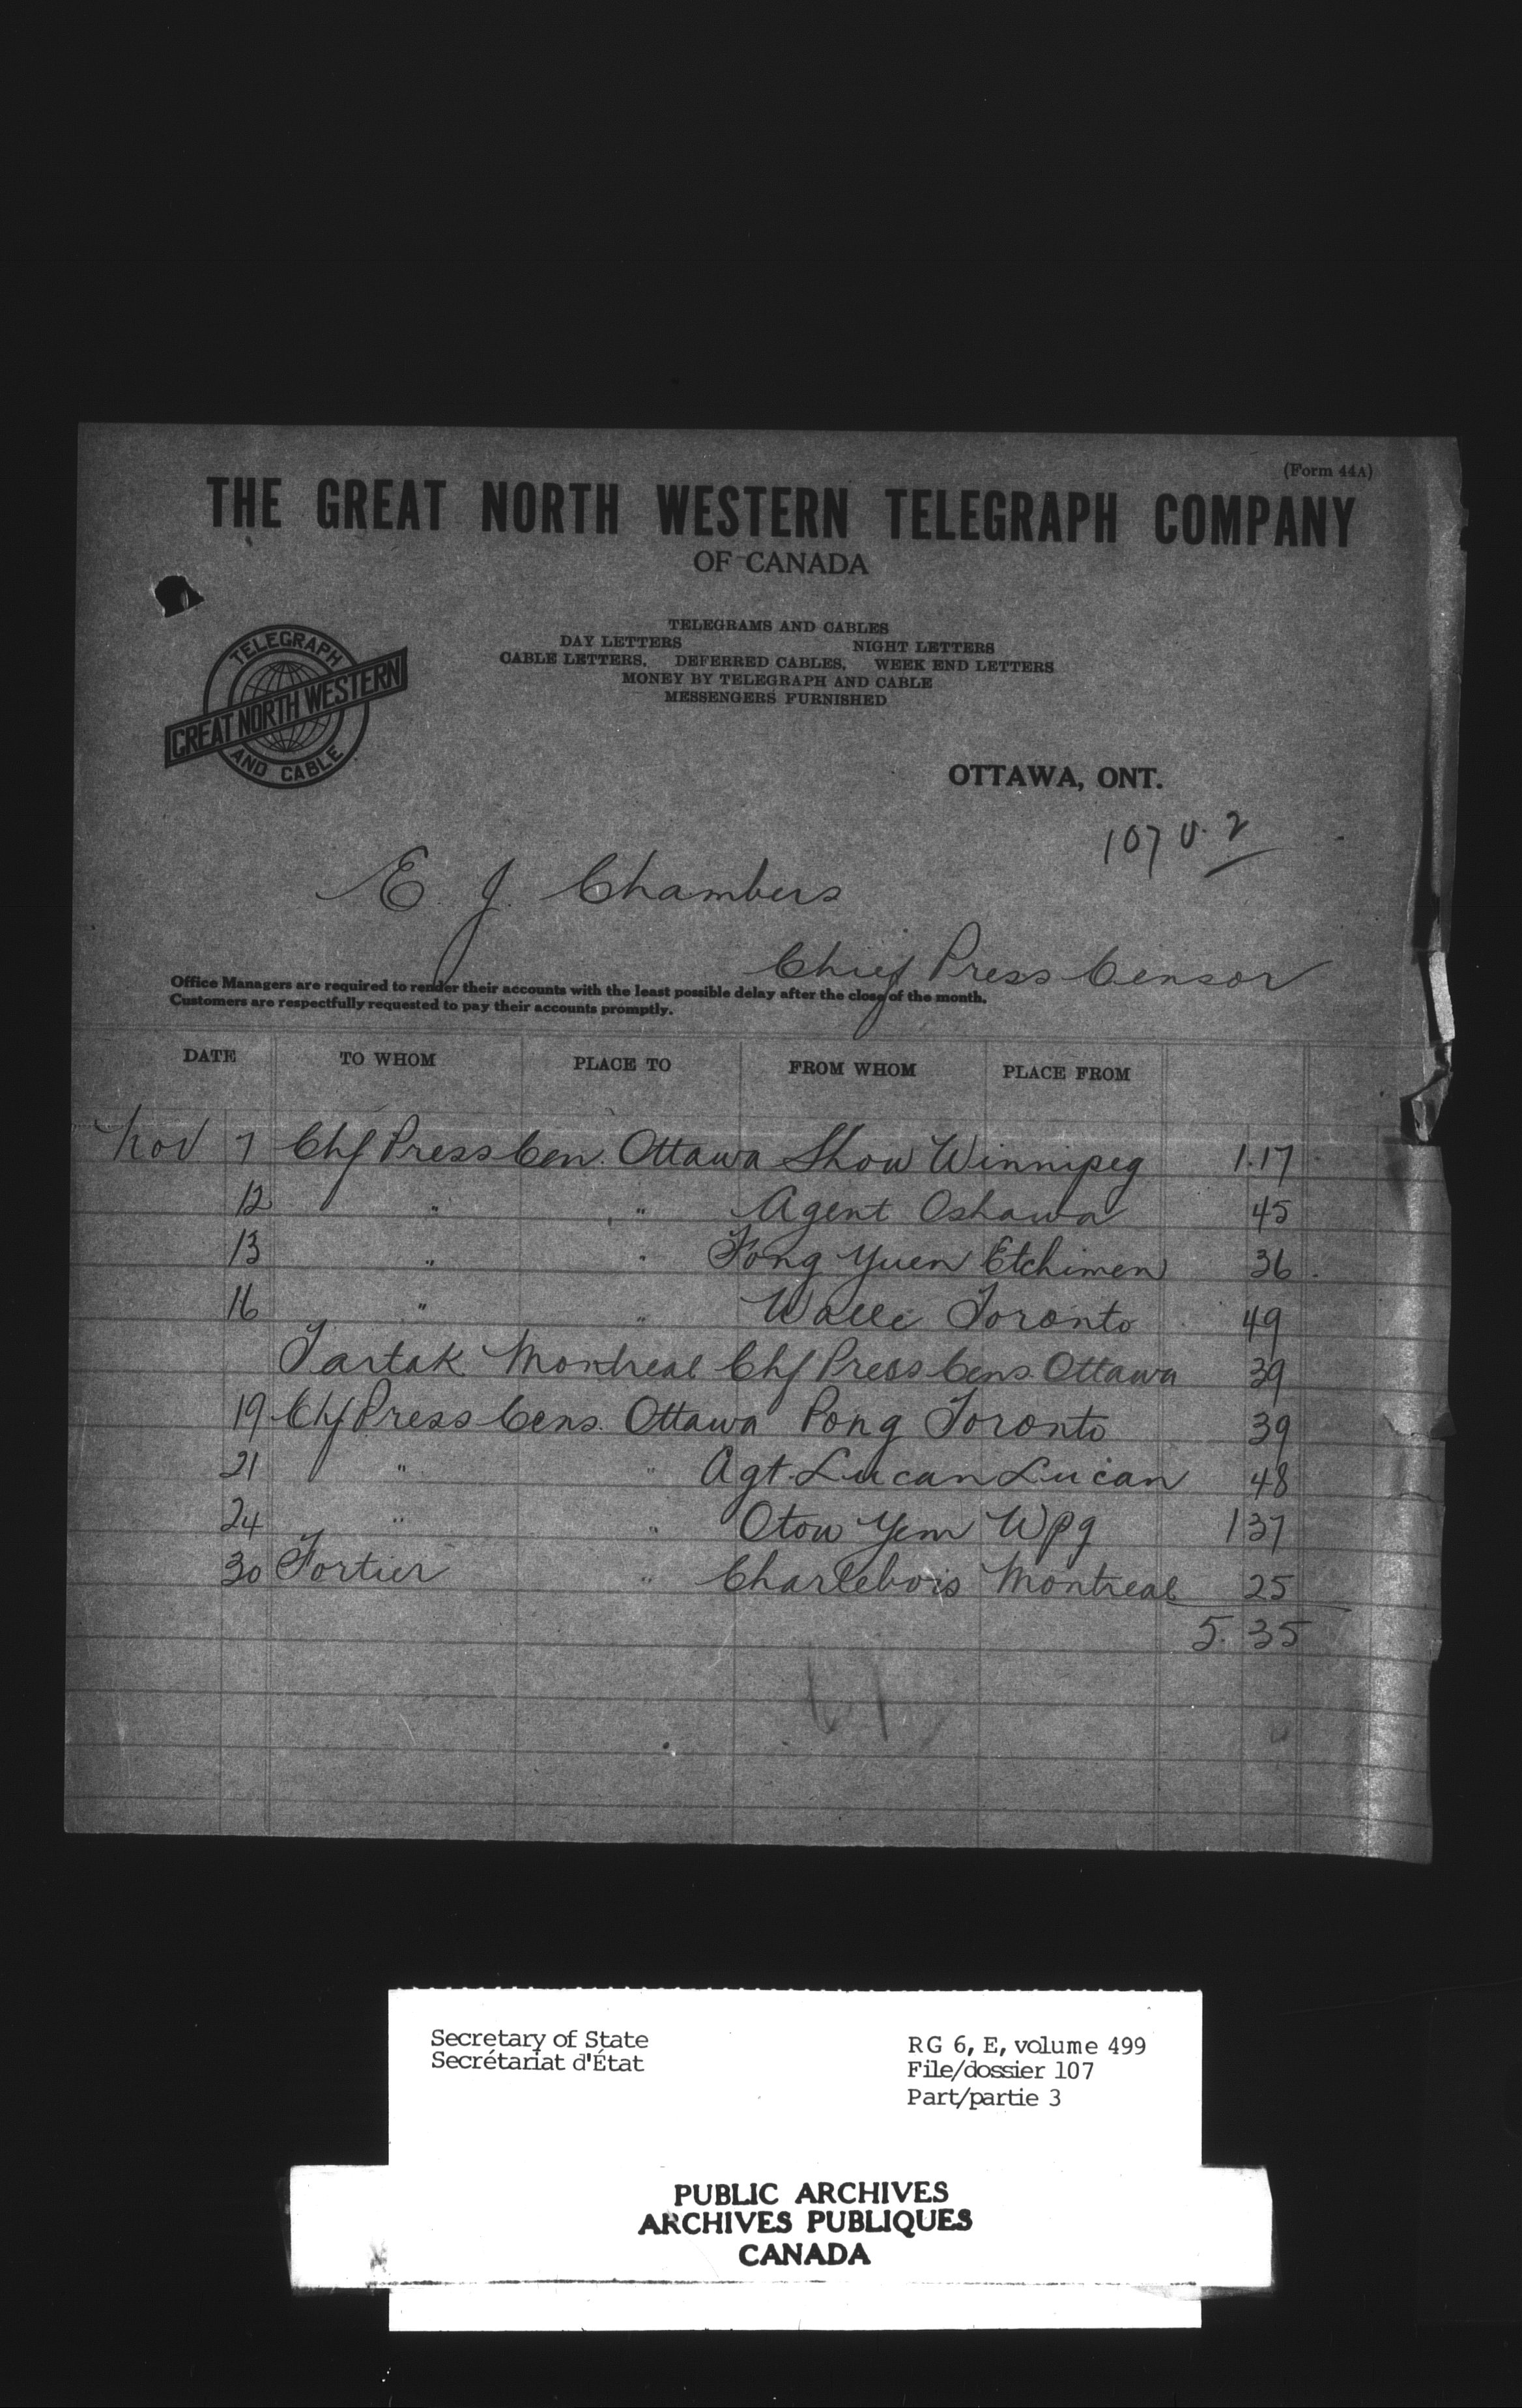 (Form 44A)
THE GREAT NORTH WESTERN TELEGRAPH COMPANY
OF CANADA
TELEGRAMS AND CABLES
DAY LETTERS NIGHT LETTERS
CABLE LETTERS, DEFERRED CABLES, WEEK END LETTERS
MONEY BY TELEGRAPH AND CABLE
MESSENGERS FURNISHED
TELEGRAPH
GREAT NORTH WESTERN
AND CABLE
OTTAWA, ONT.
107 v. 2
E. J. Chambers
Chief Press Censor
Office Managers are required to render their accounts with the least possible delay after the close of the month.
Customers are respectfully requested to pay their accounts promptly.
DATE TO WHOM PLACE TO FROM WHOM PLACE FROM
Nov 7 Chf Press Cen. Ottawa Show Winnipeg 1.17
12 " " Agent Oshawa 45
13 " " Fong Yuen Etchimen 36
16 " " Toronto 49
Tartak Montreal Chf Press Cens. Ottawa 39
19 Chf Press Cens. Ottawa Pong Toronto 39
21 " " Agt. Lucan Lucan 48
24 " " Otow Yem Wpg 137
30 Fortier " Charlebois Montreal 25
5.35
Secretary of State
Secrétariat d'État
RG 6, E, volume 499
File/dossier 107
Part/partie 3
PUBLIC ARCHIVES
ARCHIVES PUBLIQUES
CANADA